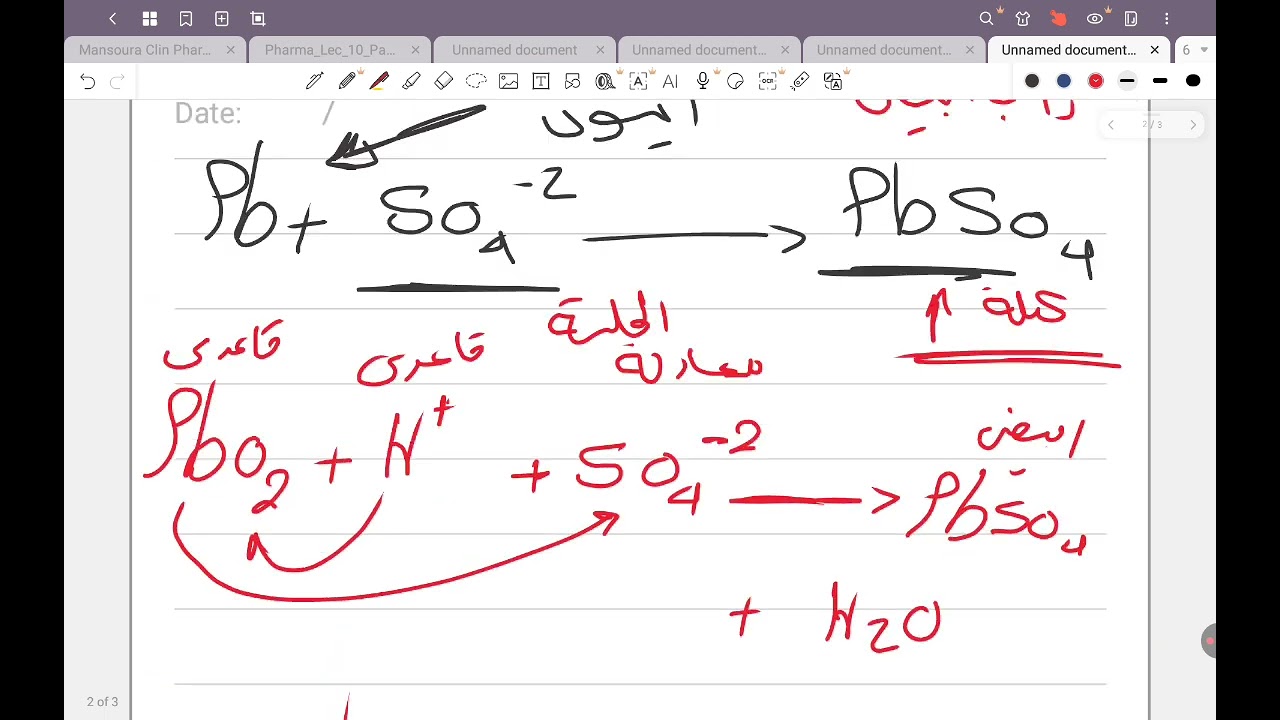 Mansoura Clin Phar... Pharma_Lec_10_Pa... Unnamed document Unnamed document... Unnamed document... Unnamed document... 6
Date: /
2/3
Pb + So4 -2 → PbSo4
كتلة
قاعدى قاعدى
معادلة
PbO2 + H+ + SO4 -2 → PbSO4
+ H2O
2 of 3